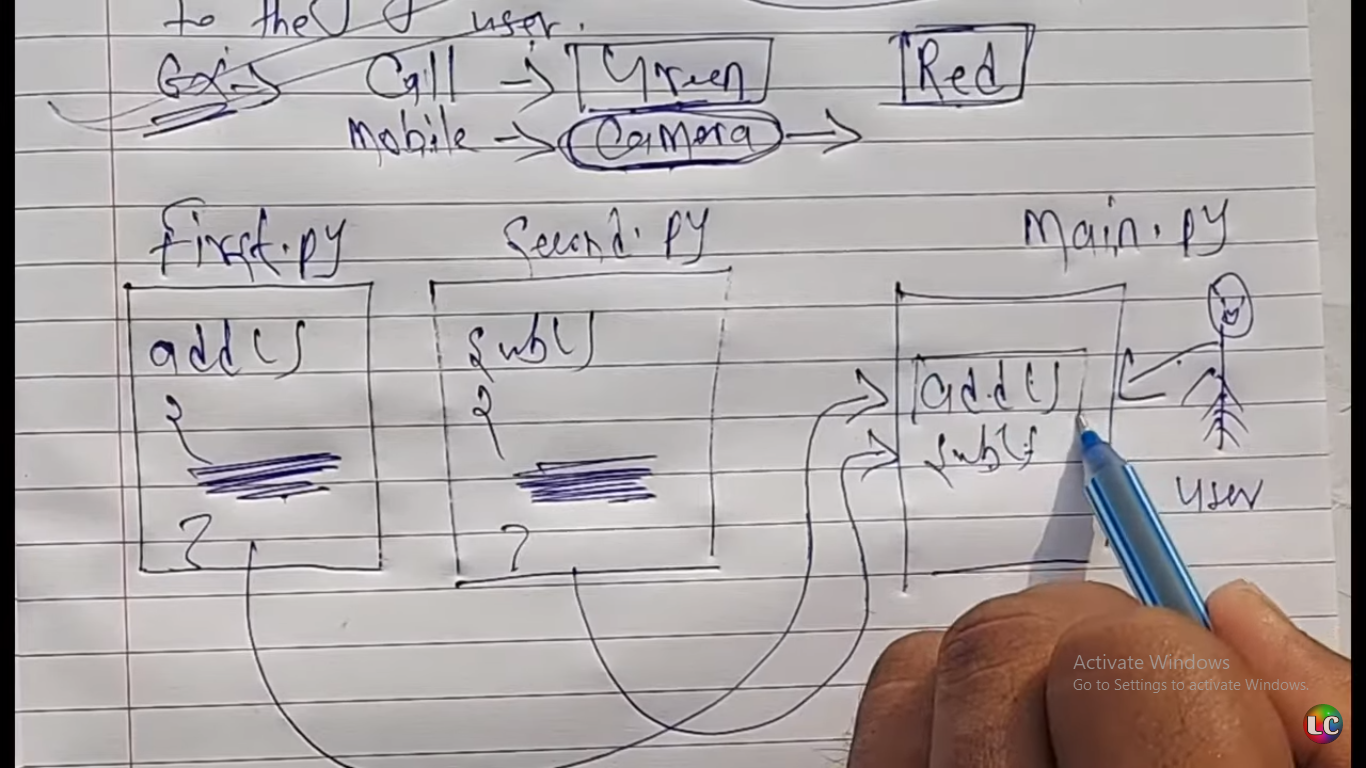 to the user.
Ex:→ Call → Green Red
Mobile → Camera →
First.py Second.py Main.py
add() sub() add()
{ { sub()
user
} }
Activate Windows
Go to Settings to activate Windows.
LC